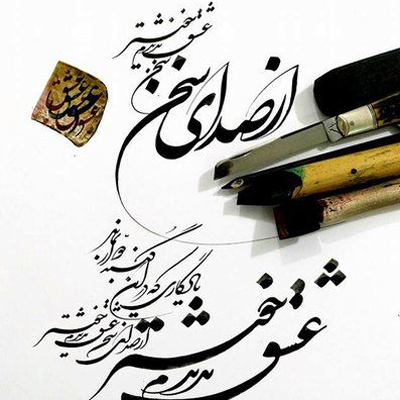 عشق ندیدم خوشتر
از صدای سخن
یادگاری که در این گنبد دوار بماند
از صدای سخن عشق ندیدم خوشتر
عشق ندیدم خوشتر